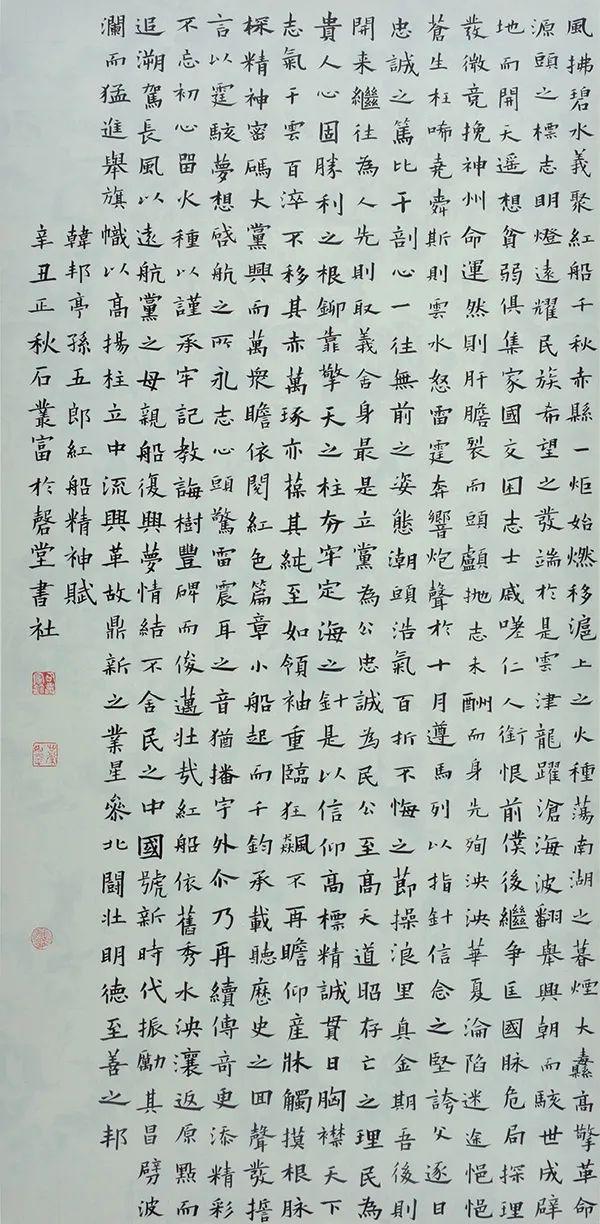 風拂碧水義聚紅船千秋赤縣一炬始燃移滬上之火種蕩南湖之暮煙大纛高擎革命
源頭之標志明燈遠耀民族希望之發端於是雲津龍躍滄海波翻舉興朝而駭世成辟
地而開天遥想貧弱俱集家國交困志士戚嗟仁人銜恨前僕後繼争匡國脉危局探理
發微竟挽神州命運然則肝膽裂而頭顱抛志未酬而身先殉泱泱華夏淪陷迷途悒悒
蒼生枉唏堯舜斯則雲水怒雷霆奔響炮聲於十月遵馬列以指針信念之堅誇父逐日
忠誠之篤比干剖心一往無前之姿態潮頭浩氣百折不悔之節操浪里真金期吾後則
開来繼往為人先則取義舍身最是立黨為公忠誠為民公至高天道昭存亡之理民為
貴人心固勝利之根鉚靠擎天之柱夯牢定海之針是以信仰高標精誠貫日胸襟天下
志氣干雲百淬不移其赤萬琢亦葆其純至如領袖重臨狂飆不再瞻仰産牀觸摸根脉
探精神密碼大黨興而萬衆瞻依閱紅色篇章小船起而千鈞承載聽歷史之回聲發擔
言以霆駭夢想啓航之所永志心頭驚雷震耳之音猶播宇外尒乃再續傳奇更添精彩
不忘初心留火種以謹承牢記教誨樹豐碑而俊邁壯哉紅船依舊秀水泱瀼返原點而
追溯駕長風以遠航黨之母親船復興夢情結不舍民之中國號新時代振勵其昌劈波
瀾而猛進舉旗幟以高揚柱立中流興革故鼎新之業星參北闕壯明德至善之邦
韓邦亭孫五郎紅船精神賦
辛丑正秋石叢富於磬堂書社